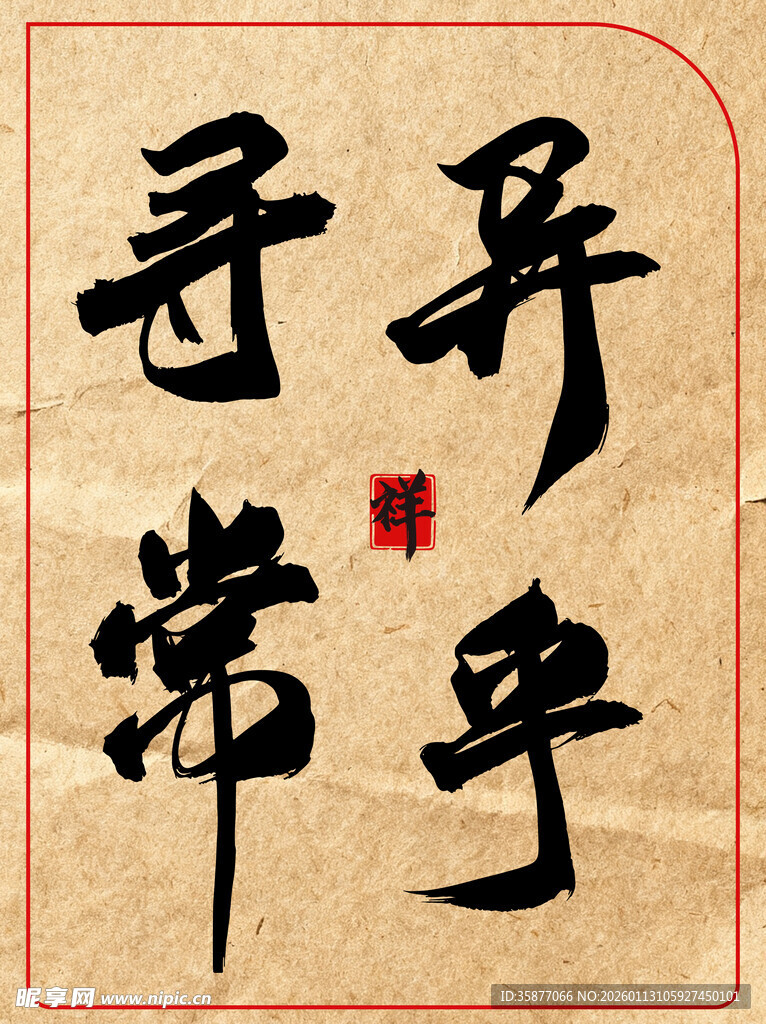 异乎
寻常
祥
昵享网 www.nipic.cn
ID:35877066 NO:20260113105927450101